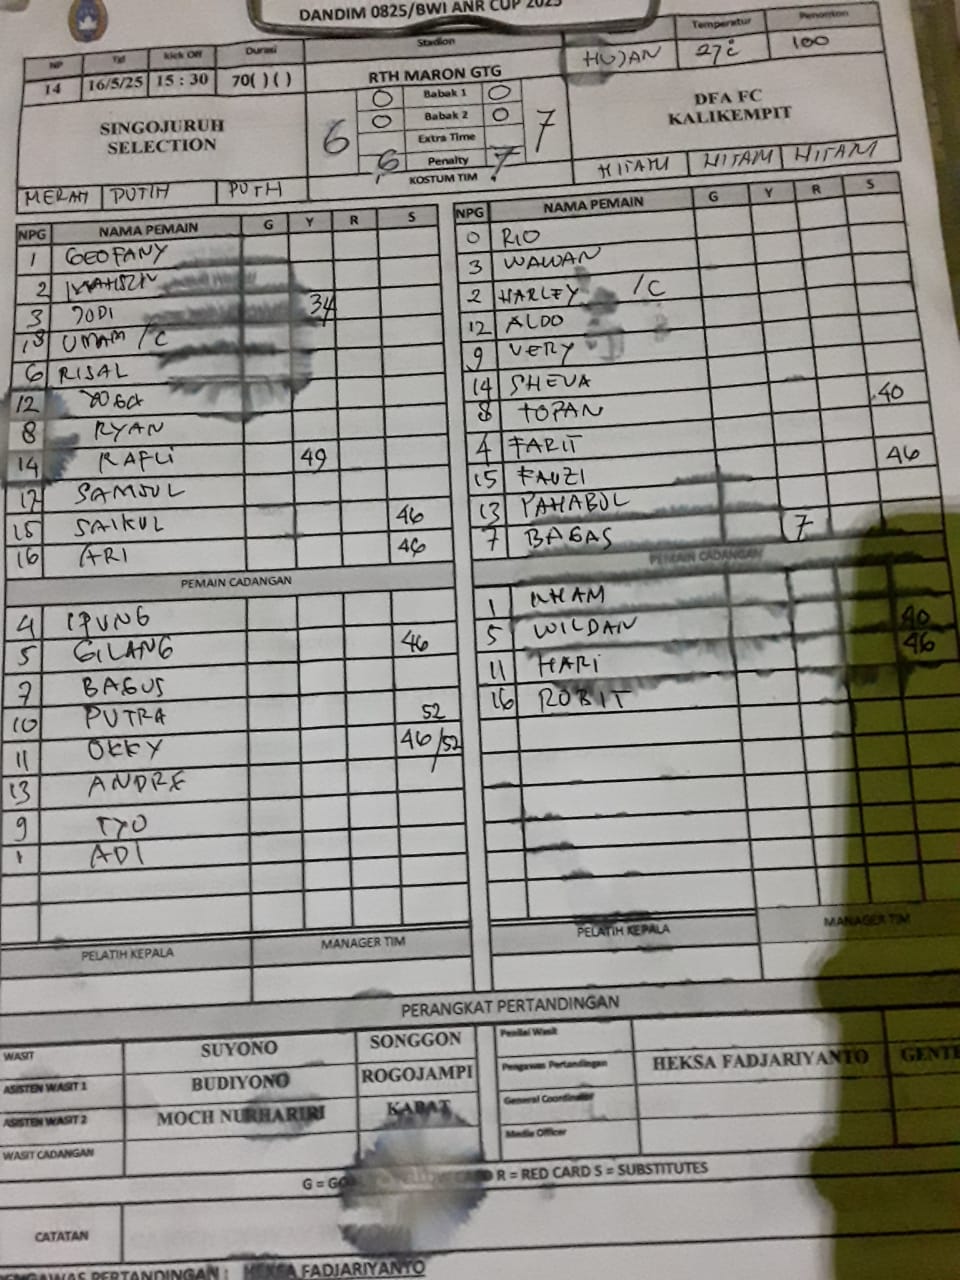 DANDIM 0825/BWI ANR CUP 2025
NP Tgl Kick Off Durasi Stadion HUJAN Temperatur Penonton
14 16/5/25 15 : 30 70( ) ( ) RTH MARON GTG 27°C 100
SINGOJURUH SELECTION
6
0 Babak 1 0
0 Babak 2 0
Extra Time
6 Penalty 7
7
DFA FC KALIKEMPIT
MERAH PUTIH PUTH KOSTUM TIM HITAM HITAM HITAM
NPG NAMA PEMAIN G Y R S
1 GEOFANY
2
3 JODI 34
18 UMAM /C
6 RISAL
12 YOGA
8 RYAN
14 RAFLI 49
17 SAMSUL
15 SAIKUL 46
16 ARI 46
PEMAIN CADANGAN
4 IPUNG
5 GILANG 46
7 BAGUS
10 PUTRA 52
11 OKKY 46/52
13 ANDRE
9 TYO
1 ADI
PELATIH KEPALA MANAGER TIM
NPG NAMA PEMAIN G Y R S
0 RIO
3 WAWAN
2 HARLEY /C
12 ALDO
9 VERY
14 SHEVA
8 TOPAN 40
4 FARIT
15 FAUZI 46
13 PAHABOL
7 BAGAS 7
PEMAIN CADANGAN
1
5 WILDAN 40
11 HARI 46
16 ROBIT
PELATIH KEPALA MANAGER TIM
PERANGKAT PERTANDINGAN
WASIT SUYONO SONGGON Penilai Wasit
ASISTEN WASIT 1 BUDIYONO ROGOJAMPI Pengawas Pertandingan HEKSA FADJARIYANTO GENTE
ASISTEN WASIT 2 MOCH NURHARIRI KABAT General Coordinator
WASIT CADANGAN Media Officer
G = R = RED CARD S = SUBSTITUTES
CATATAN
PENGAWAS PERTANDINGAN : HEKSA FADJARIYANTO